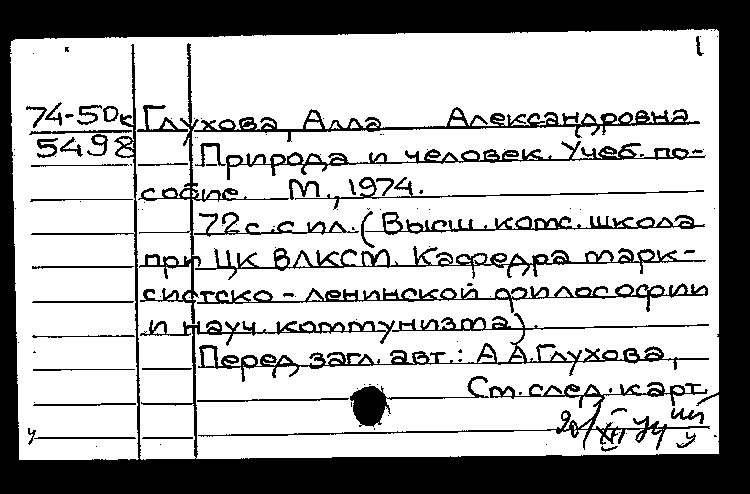 74-50к Глухова, Алла Александровна
5498
Природа и человек. Учеб. по-
собие. М., 1974.
72 с. с ил. (Высш. комс. школа
при ЦК ВЛКСМ. Кафедра марк-
систско-ленинской философии
и науч. коммунизма).
Перед загл. авт.: А А. Глухова,
См. след. карт.
у